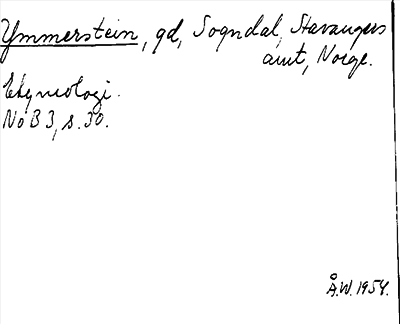 Ymmerstein, gd, Sogndal, Stavangers
amt, Norge.
Etymologi.
NoB 3, s. 30.
Å.W. 1954.